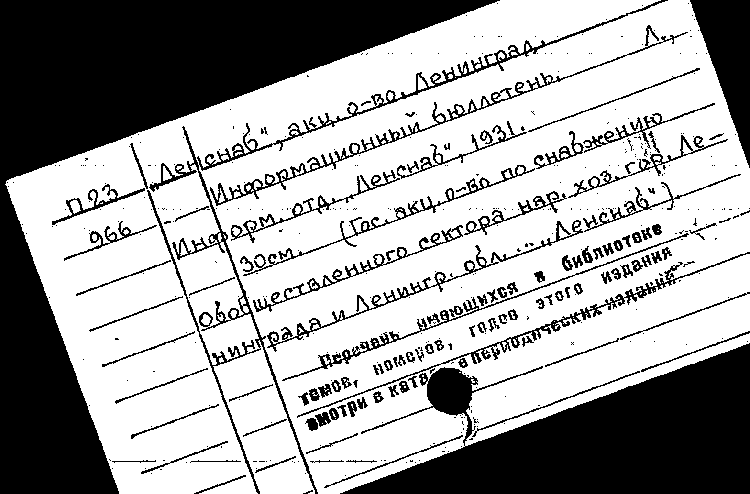 П23
966
„Ленснаб", акц. о-во. Ленинград.
Информационный бюллетень. Л.,
Информ. отд. „Ленснаб", 1931.
30см. (Гос. акц. о-во по снабжению
обобществленного сектора нар. хоз. гор. Ле-
нинграда и Ленингр. обл. ... „Ленснаб").
Перечень имеющихся в библиотеке
томов, номеров, годов этого издания
смотри в периодических изданий